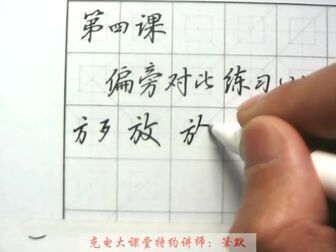 第四课
偏旁对比练习(
放 放
充电大课堂特约讲师：